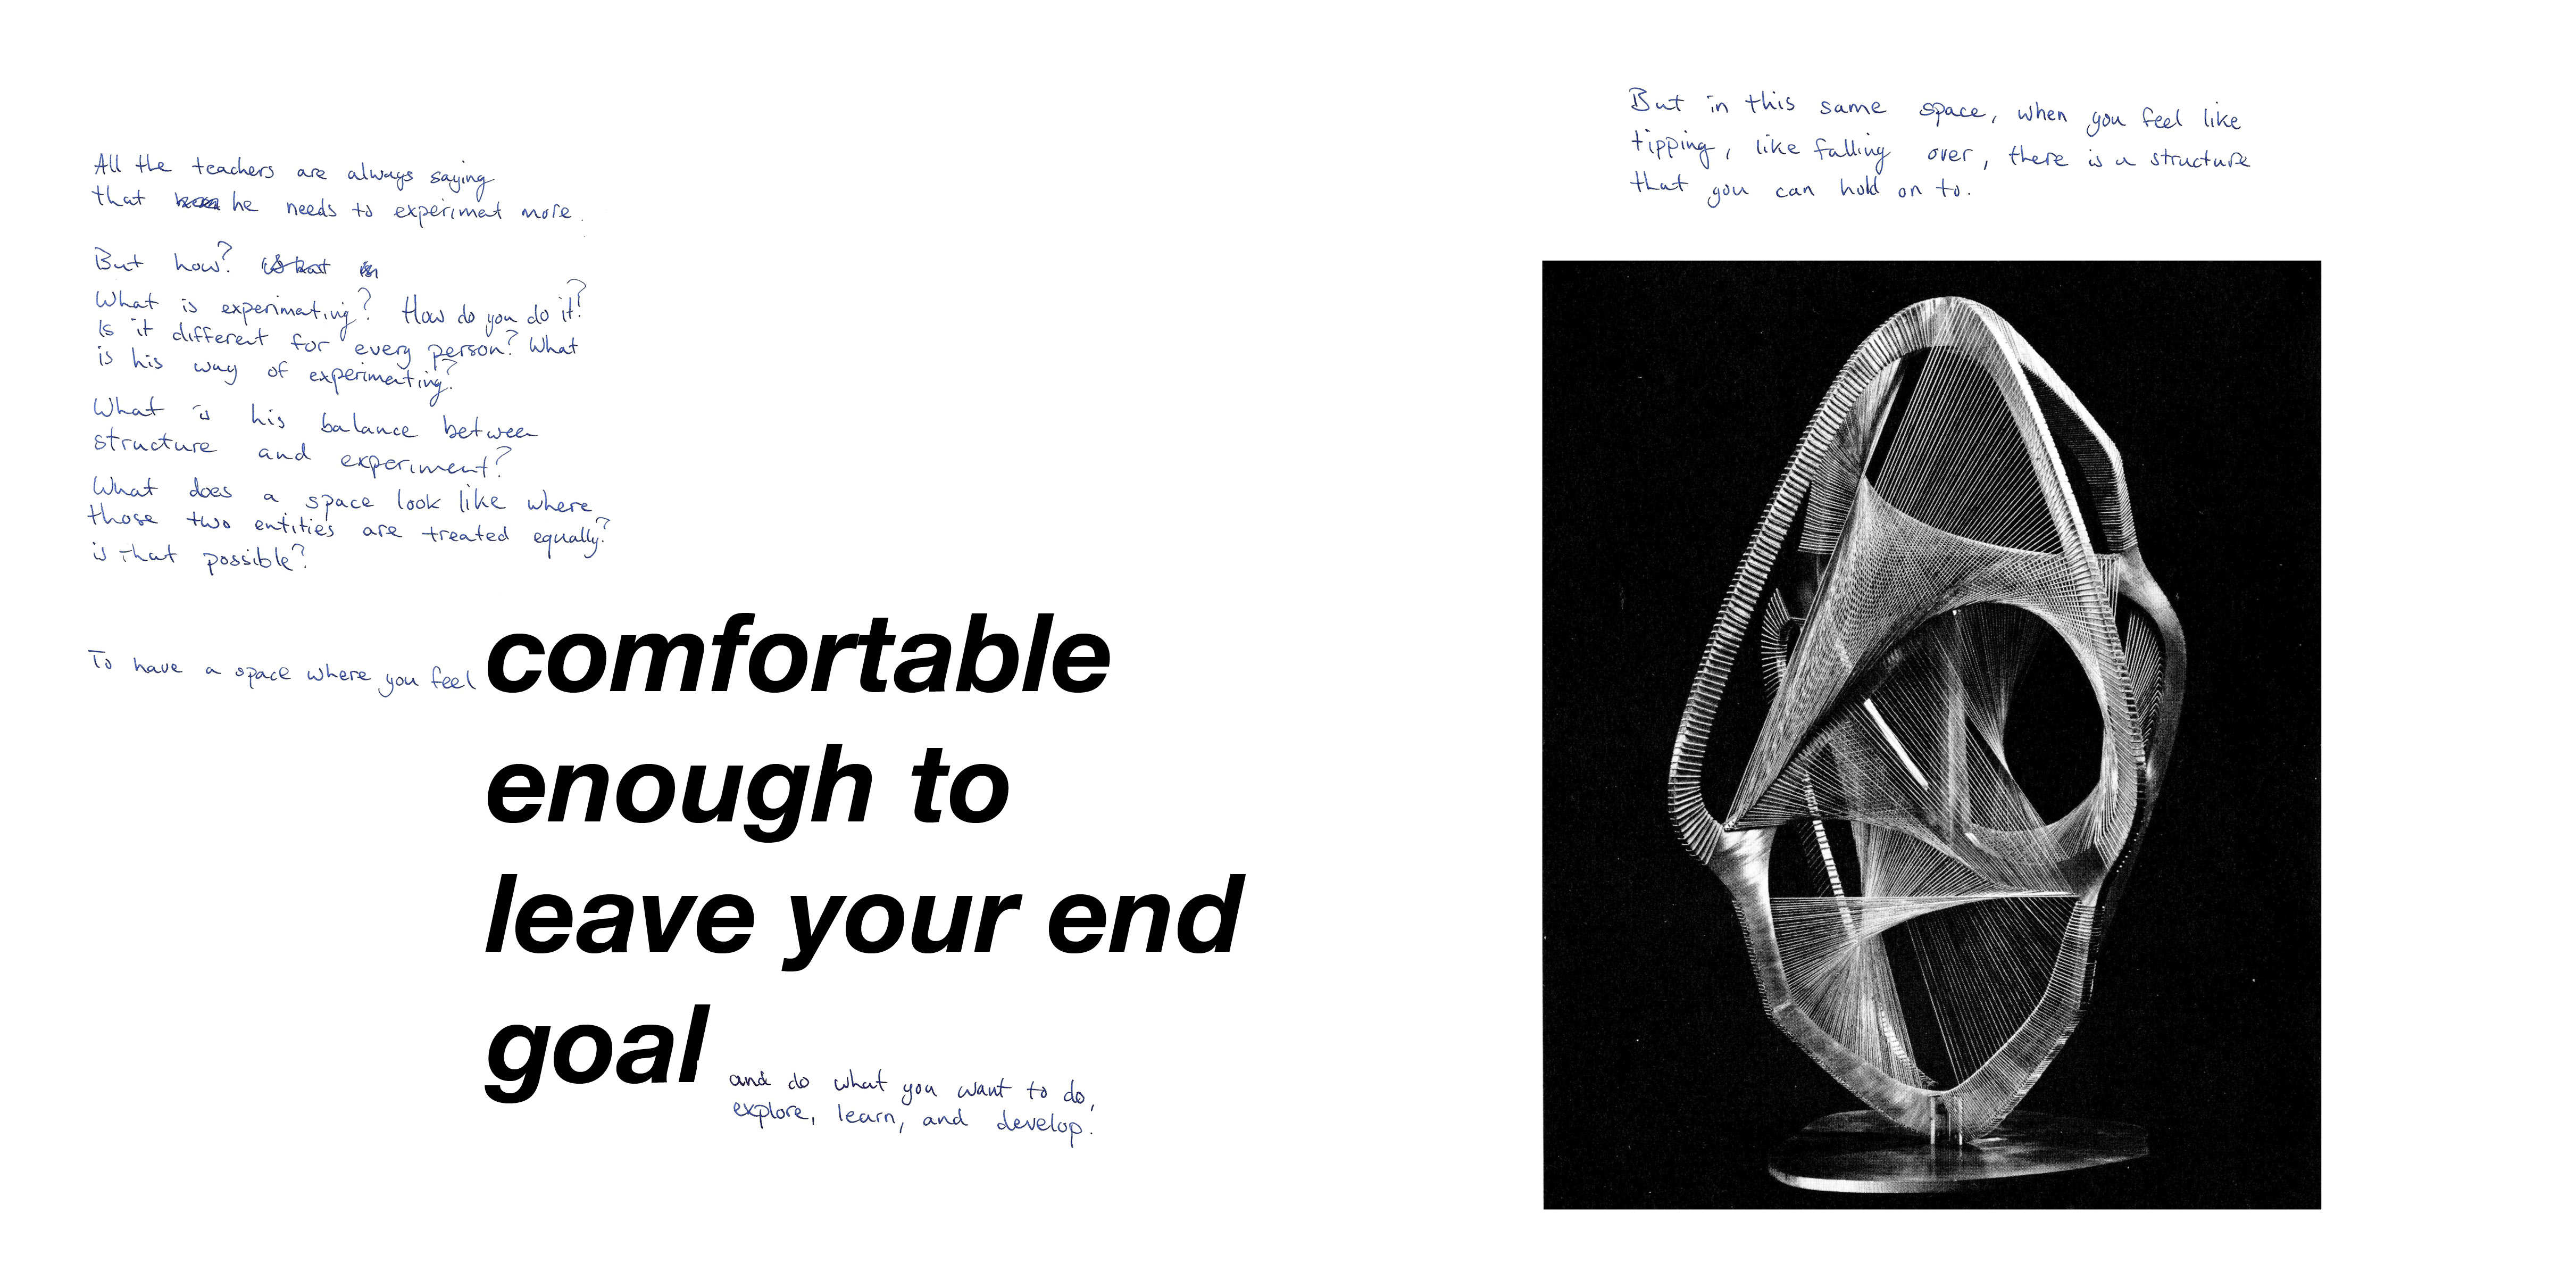 All the teachers are always saying
that he needs to experiment more.
But how? What is
What is experimenting? How do you do it?
Is it different for every person? What
is his way of experimenting?
What is his balance between
structure and experiment?
What does a space look like where
those two entities are treated equally?
is that possible?
To have a space where you feel comfortable
enough to
leave your end
goal
and do what you want to do,
explore, learn, and develop.
But in this same space, when you feel like
tipping, like falling over, there is a structure
that you can hold on to.